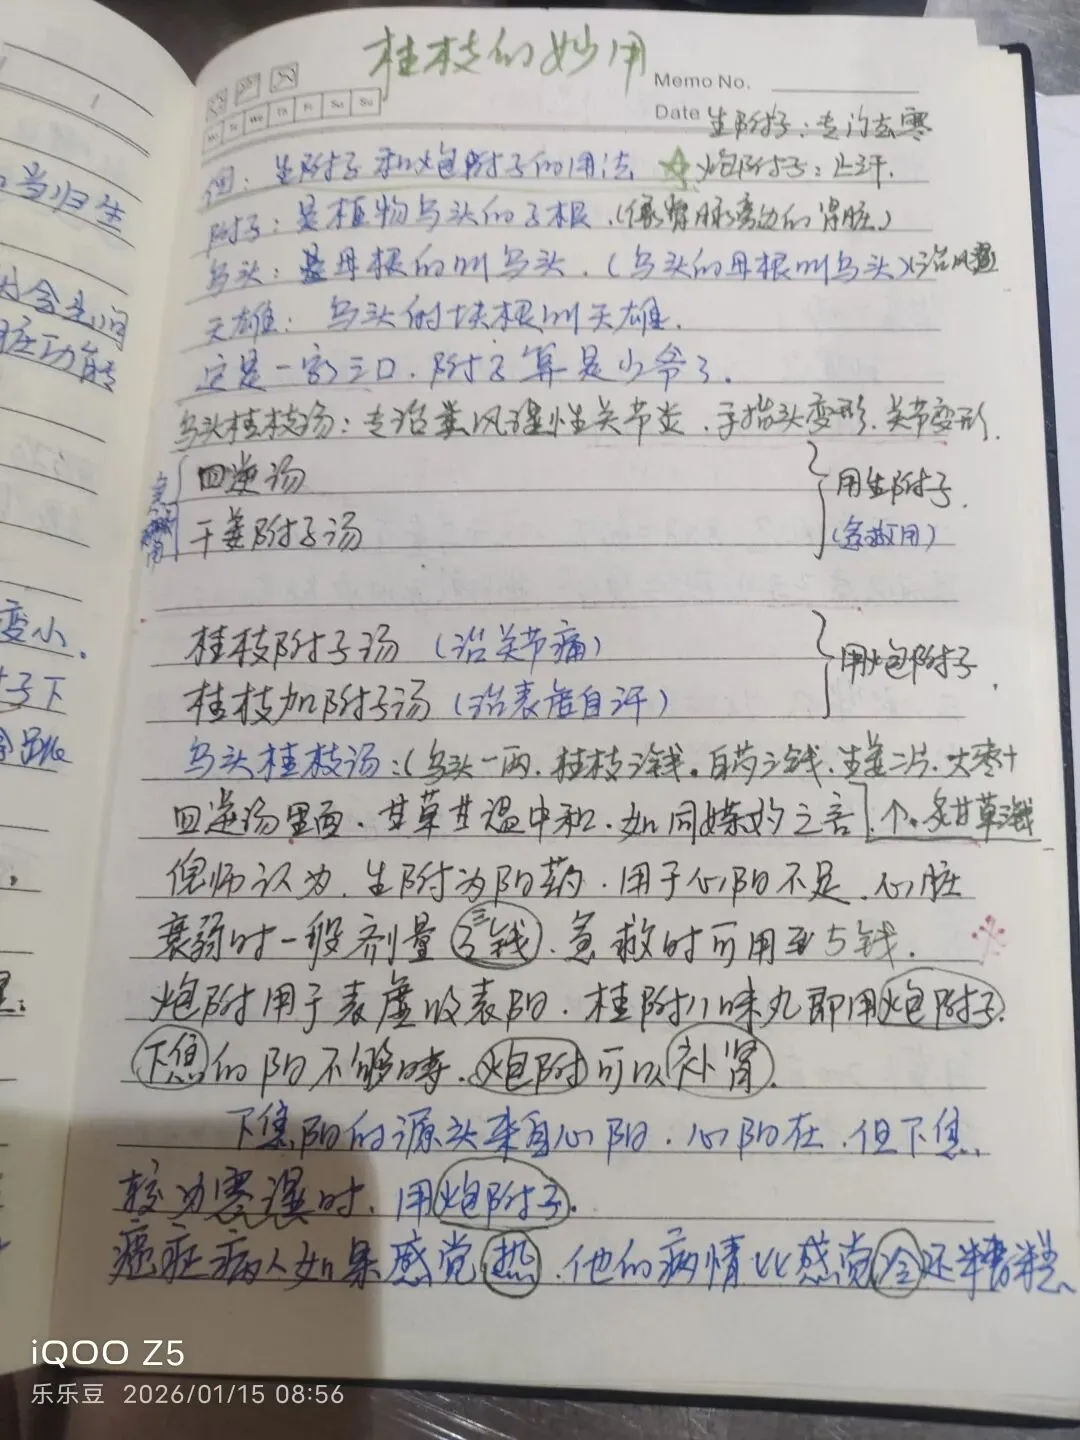 桂枝的妙用
Memo No.
Mo Tu We Th Fr Sa Su
Date 生附子：专门去寒
例：生附子和炮附子的用法 ☆炮附子：止汗.
附子：是植物乌头的子根.(像肾脏旁边的肾脏)
乌头：是母根的叫乌头.(乌头的母根叫乌头)(治风湿
天雄：乌头的块根叫天雄.
这是一家三口.附子算是少爷了.
乌头桂枝汤：专治类风湿性关节炎.手指头变形.关节变形.
四逆汤
用生附子.
干姜附子汤
(急救用)
桂枝附子汤 (治关节痛)
用炮附子.
桂枝加附子汤 (治表虚自汗)
乌头桂枝汤：(乌头一两.桂枝3钱.白芍3钱.生姜二片.大枣十
四逆汤里面.甘草甘温中和.如同媒妁之言 个.炙甘草3钱
倪师认为.生附为阳药.用于心阳不足.心脏
衰弱时一般剂量3钱.急救时可用到5钱.
炮附用于表虚收表阳.桂附八味丸即用炮附子.
下焦的阳不够时.炮附可以补肾.
下焦阳的源头来自心阳.心阳在.但下焦
较为寒湿时.用炮附子.
癌症病人如果感觉热.他的病情比感觉冷还糟糕.
当归生
变小.
子下
iQOO Z5
乐乐豆 2026/01/15 08:56